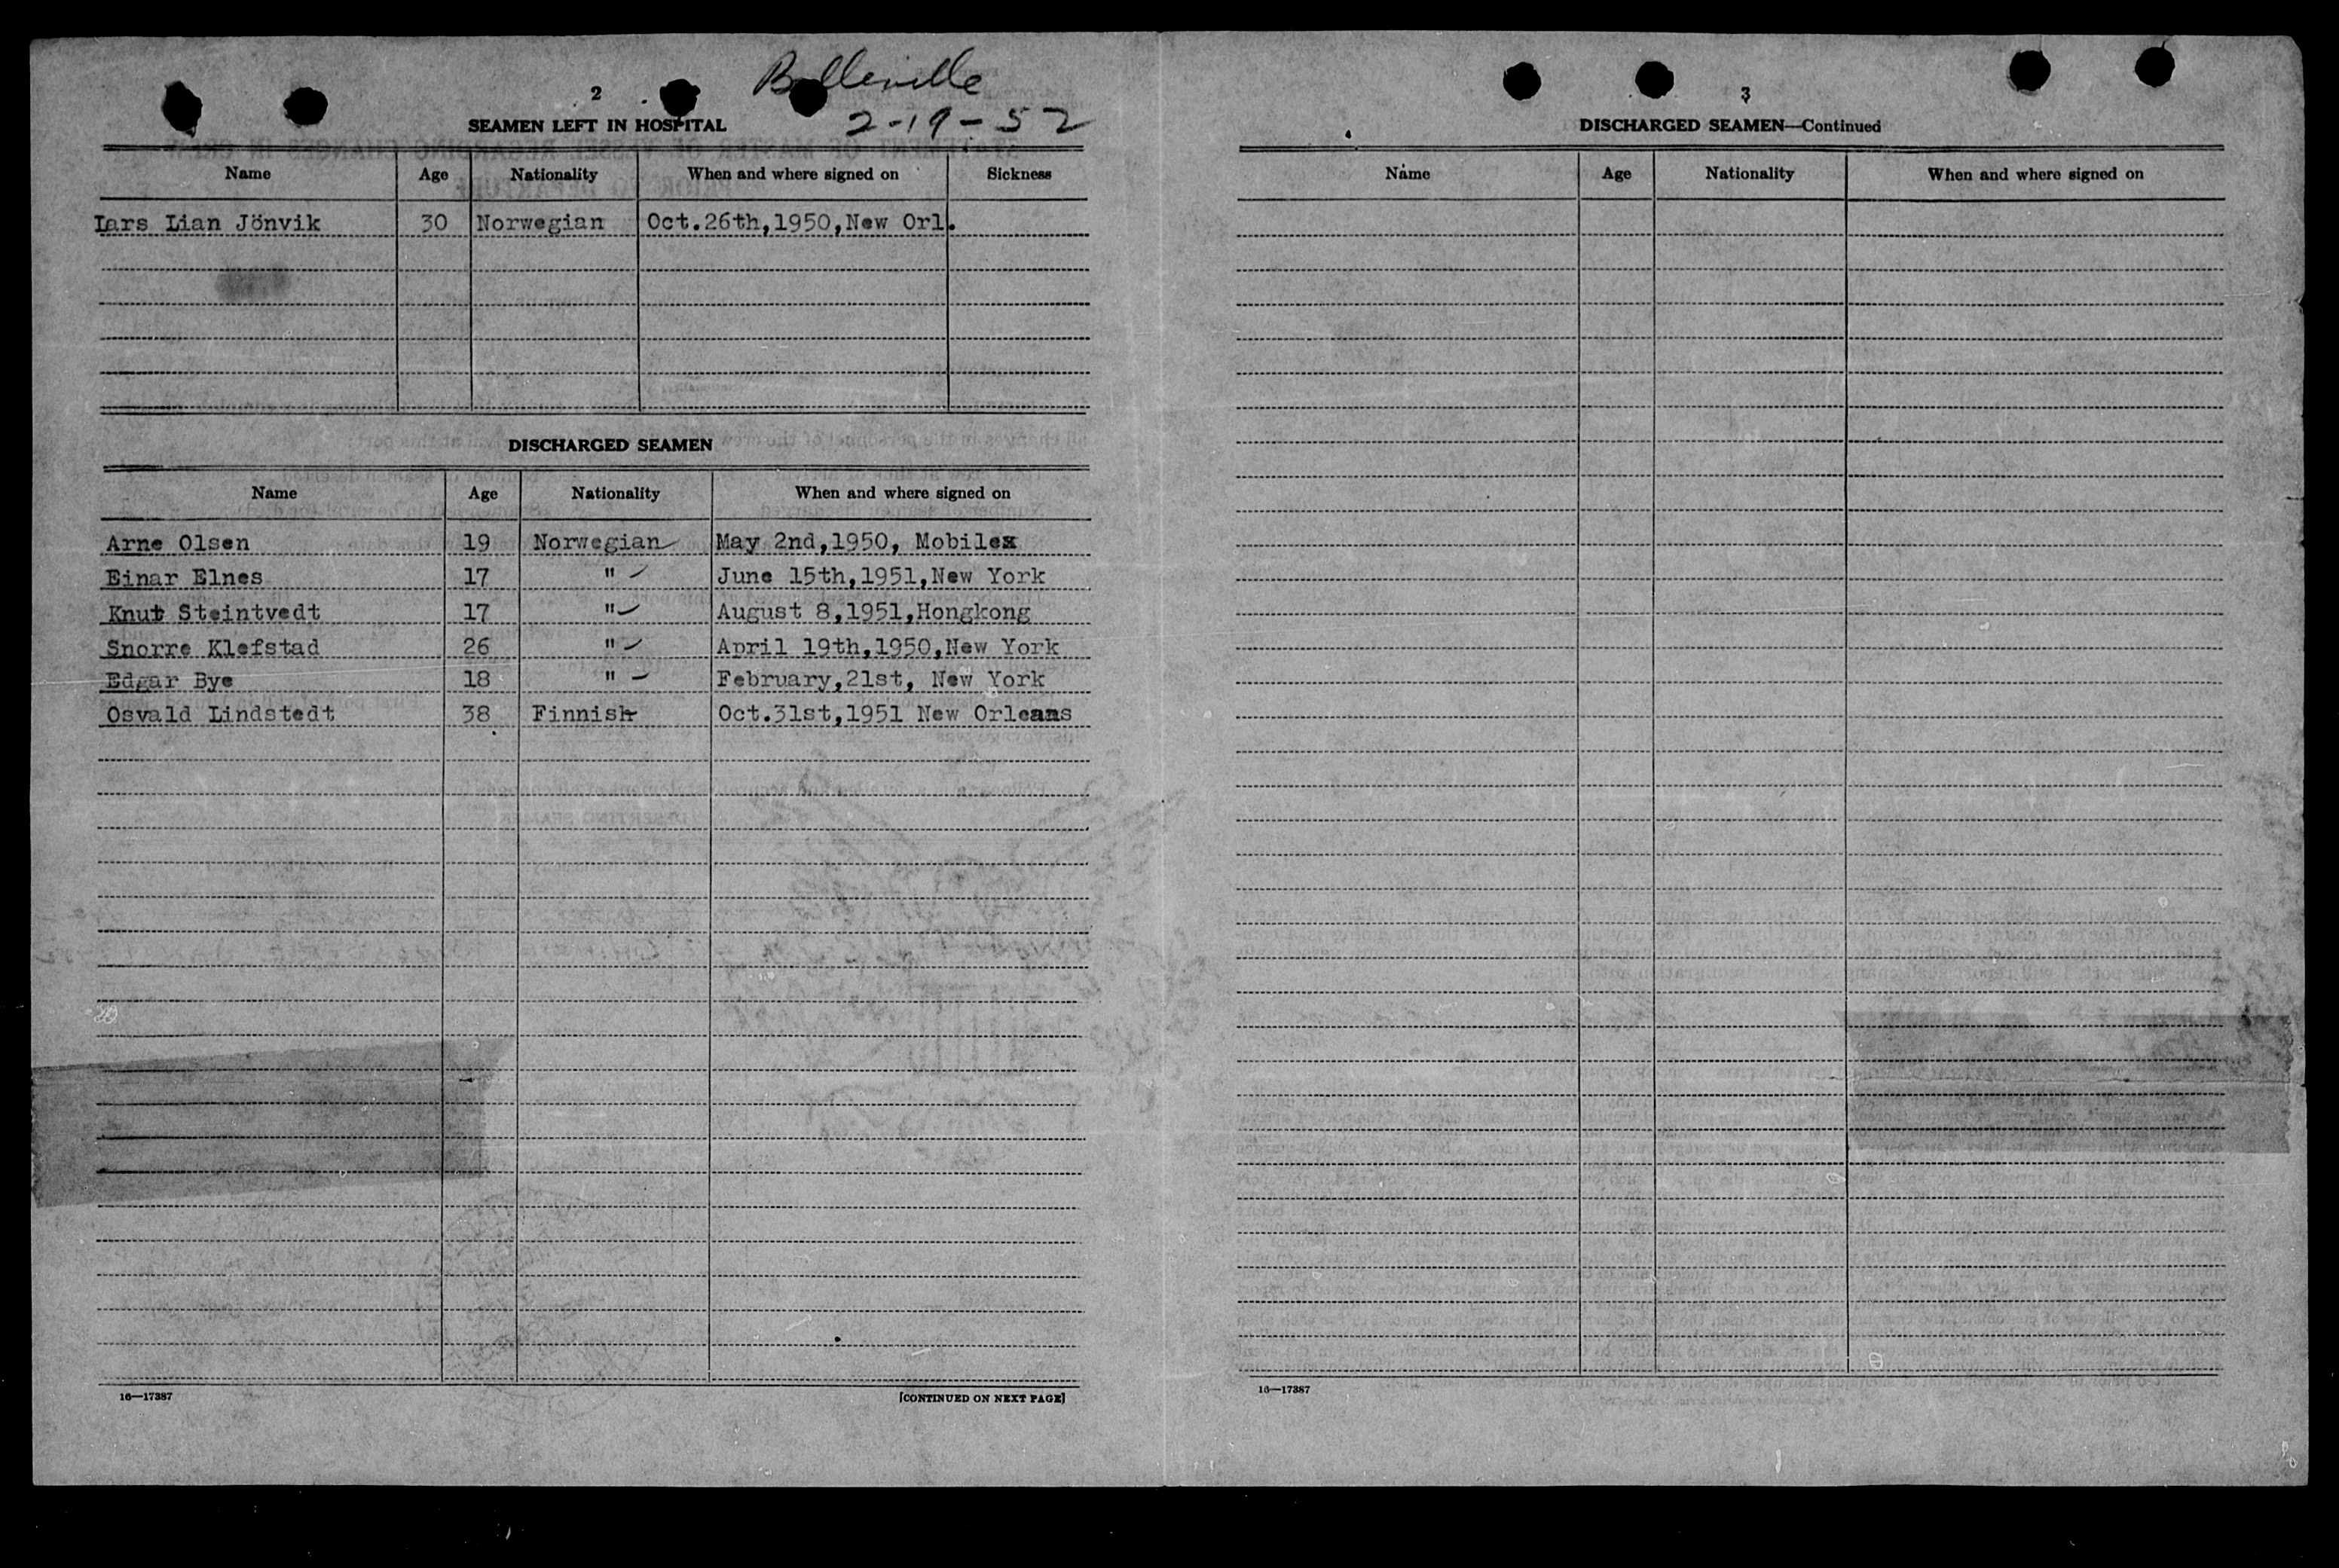 Belleville
2-19-52
2
SEAMEN LEFT IN HOSPITAL
Name Age Nationality When and where signed on Sickness
Lars Lian Jönvik 30 Norwegian Oct.26th,1950,New Orl.
DISCHARGED SEAMEN
Name Age Nationality When and where signed on
Arne Olsen 19 Norwegian May 2nd,1950, Mobilex
Einar Elnes 17 " June 15th,1951,New York
Knut Steintvedt 17 " August 8,1951,Hongkong
Snorre Klefstad 26 " April 19th,1950,New York
Edgar Bye 18 " February,21st, New York
Osvald Lindstedt 38 Finnish Oct.31st,1951 New Orleans
16—17387 [CONTINUED ON NEXT PAGE]
3
DISCHARGED SEAMEN—Continued
Name Age Nationality When and where signed on
16—17387